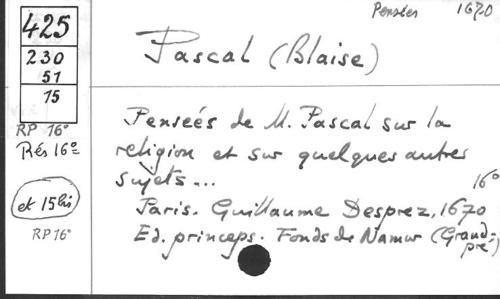 Pensées 1670
425
230
51
15
RP 16°
Rés 16°
et 15 bis
RP 16°
Pascal (Blaise)
Penseés de M. Pascal sur la
religion et sur quelques autres
sujets... 16°
Paris. Guillaume Desprez, 1670
Ed. princeps. Fonds de Namur (Grand-
pré)